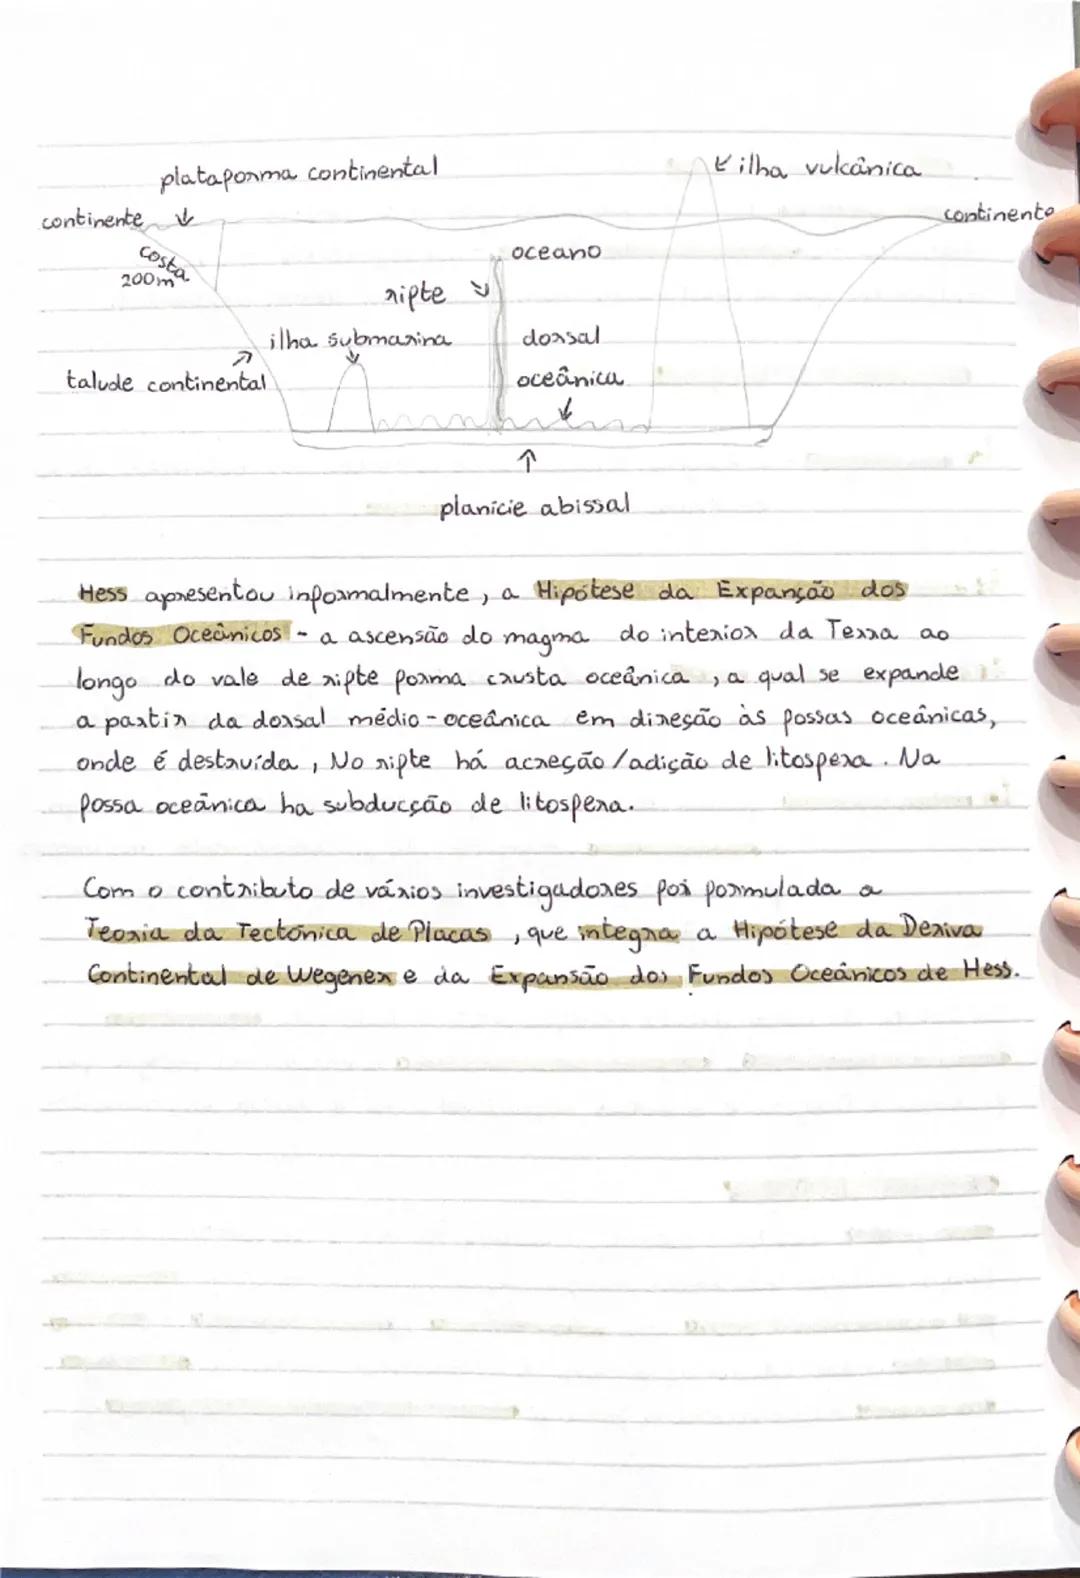 plataforma continental
ilha vulcânica
continente
continente
costa
200m
oceano
rifte
ilha submarina
dorsal
oceânica
talude continental
planície abissal
Hess apresentou informalmente, a Hipótese da Expanção dos
Fundos Oceânicos - a ascensão do magma do interior da Terra ao
longo do vale de rifte forma crusta oceânica, a qual se expande
a partir da dorsal médio-oceânica em direção às fossas oceânicas,
onde é destruída, No rifte há acreção/adição de litosfera. Na
fossa oceânica ha subducção de litosfera.
Com o contributo de vários investigadores foi formulada a
Teoria da Tectónica de Placas, que integra a Hipótese da Deriva
Continental de Wegener e da Expansão dos Fundos Oceânicos de Hess.